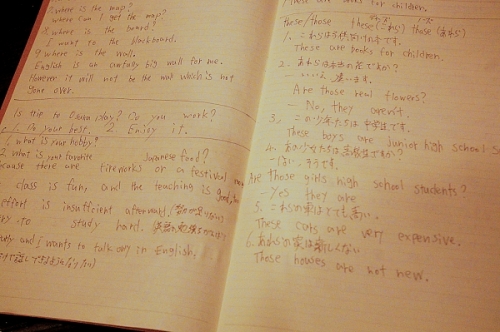 where is the map?
where can I get the map?
where is the board?
I want to the blackboard.
9. where is the wall.
English is an awfully big wall for me.
However, it will not be the wall which is not
gone over.
Is trip to Osaka play? Do you work?
1. Do your best. 2. Enjoy it.
1. what is your hobby?
2. what is your favorite Japanese food?
because there are fireworks or a festival
class is fun, and the teaching is good
effort is insufficient afterward.
to study hard.
and I wants to talk only in English.
These are books for children.
these/those these(これら) those(あれら)
1. これらは子供向けの本です。
These are books for children.
2. あれらは本当の花ですか?
— いいえ、違います。
Are those real flowers?
— No, they aren't.
3. この少年たちは中学生です。
These boys are junior high school s
4. あの少女たちは高校生ですか?
— はい、そうです。
Are those girls high school students?
— Yes they are
5. これらの車はとても高い。
These cars are very expensive.
6. あれらの家は新しくない
Those houses are not new.